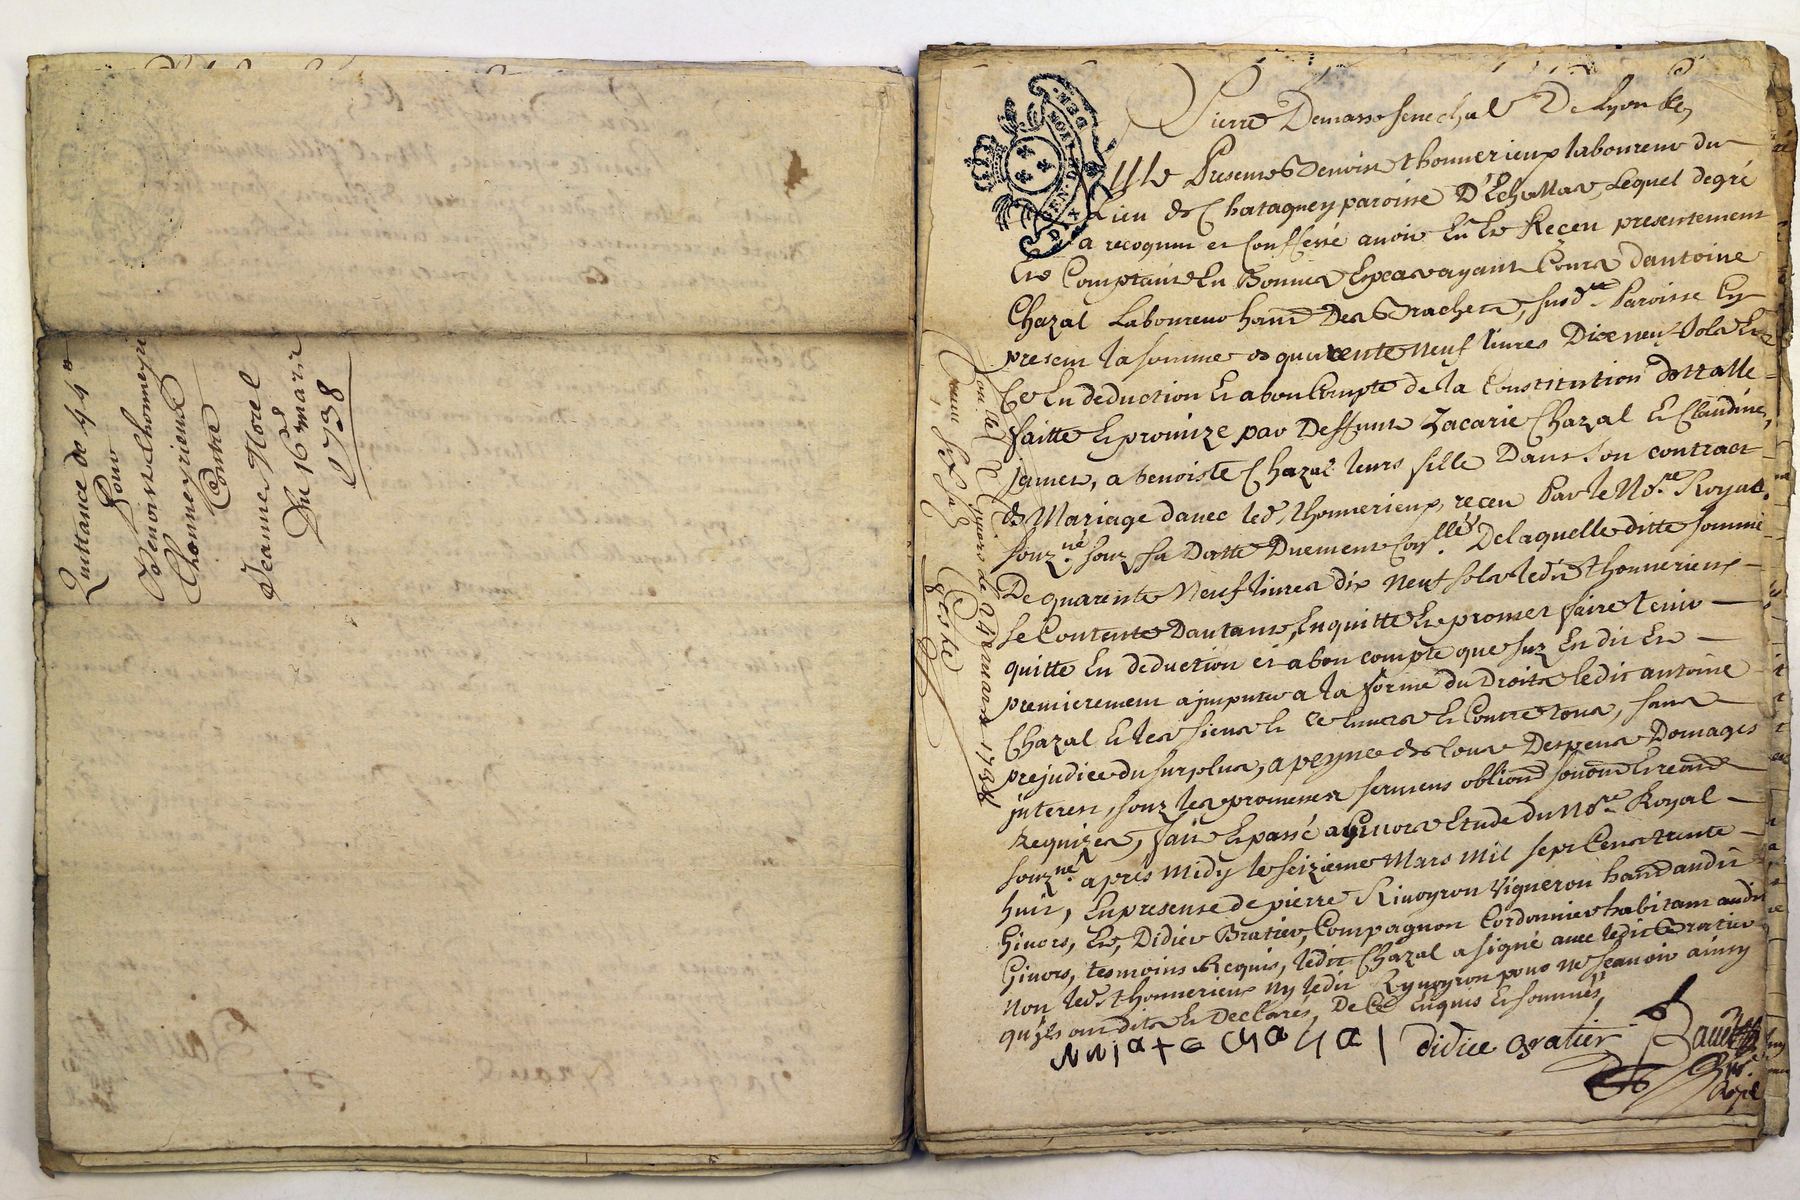 Quittance de 49#
Pour
Benoist thomeyrieux
Thonnerieux
Contre
Jeanne Morel
Du 16e mars
1738
GEN. DE LYON
Pierre Demasso senechal De Lyon &c
Presence Benoist thonnerieux laboureur du
Lieu de Chataney paroisse D'Echallas, Lequel de gré
a recognu et Confessé avoir Eu Et Reçeu presentement
Et Comptant En Bonnes Especes ayant Cours d'antoine
Chazal Laboureur habt Des Brachets, susdte Paroisse Cy
present la somme de quarente neuf livres Dix neuf sols Et
Ce En deduction Et a bon Compte de la Constitution dottalle
faitte Et promize par Deffunt Zacarie Chazal Et Claudine
James, a benoiste Chazal leurs fille Dans son contract
de Mariage d'avec led. thonnerieux, receu Par le Nore Royal
souzné souz sa Datte Duement Conllé, De laquelle ditte somme
De quarente Neuf livres dix neuf sols ledit thonnerieux
se Contente D'autant, En quitte Et promet faire tenir
quitte En deduction et a bon compte que suz En dit Et
premierement a jmputer a la forme du Droits ledit antoine
Chazal Et les siens Et Ce Envers Et Contre tous, sans
prejudice du surplus, a peyne de tous Despens Domages
jnterest, souz les promesses serments obliond soumond Et renond
Requizes, fait Et passé a Givors Etude du Nore Royal
souzné apres Midy le seizieme Mars Mil sept Cens trente
huit, En presense de pierre Rivoyron Vigneron habt audit
Givors, Et, Didier Bratier, Compagnon Cordonnier habitant audit
Givors, tesmoins Requis, ledit Chazal a signé avec ledit Bratier
Non led. thonnerieux ny ledit Ryvoyron pour ne sçavoir ainsy
qu'ils ont dits Et Declarés, De Ce Enquis Et sommés
Chazal didier Bratier
Conllé a Givors le 24 mars 1738